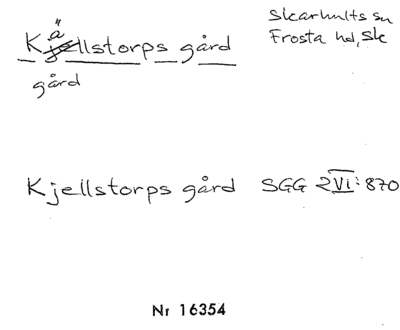 Källstorps gård
Skarhults sn
Frosta hd, Sk
gård
Kjellstorps gård SGG 2VI:870
Nr 16354